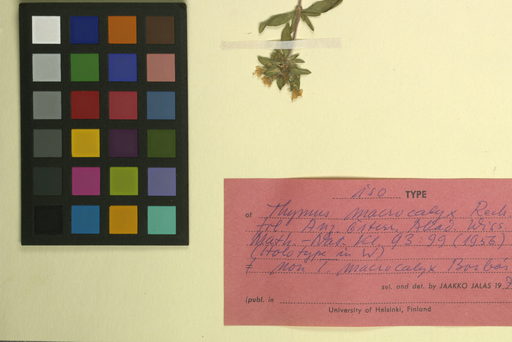 iso TYPE
of Thymus macrocalyx Rech.
Anz. Österr. Akad. Wiss.
Math.-Nat. Kl. 93:99 (1956)
(Holotype in W)
≠ non T. macrocalyx Borbás
sel. and det. by JAAKKO JALAS 19
(publ. in
University of Helsinki, Finland